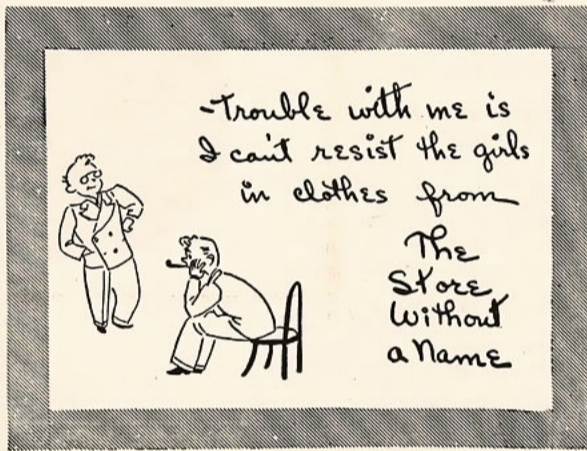 -Trouble with me is
I can't resist the girls
in clothes from
The
Store
Without
a Name